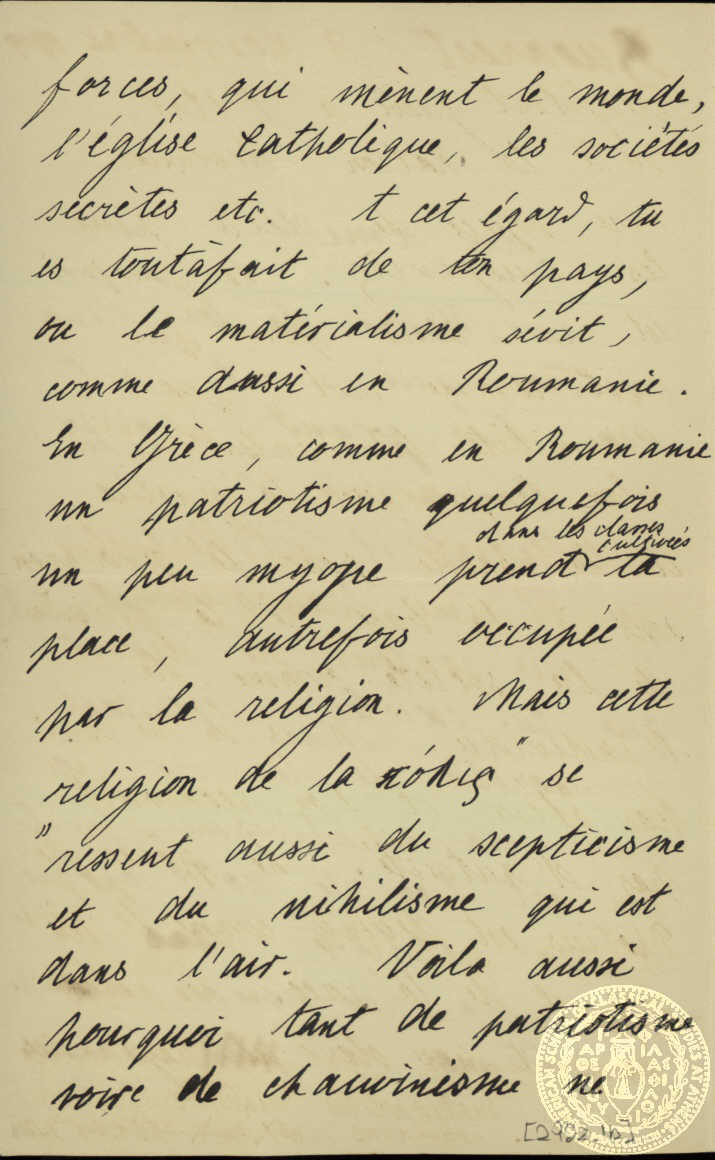 forces, qui mènent le monde,
l'église Catholique, les sociétés
secrètes etc. A cet égard, tu
es toutàfait de ton pays,
ou le matérialisme sévit,
comme aussi en Roumanie.
En Grèce, comme en Roumanie
un patriotisme quelquefois
dans les classes
cultivées
un peu myope prend la
place, autrefois occupée
par la religion. Mais cette
religion de la πόλις" se
"ressent aussi du scepticisme
et du nihilisme qui est
dans l'air. Voila aussi
pourquoi tant de patriotisme
voire de chauvinisme ne